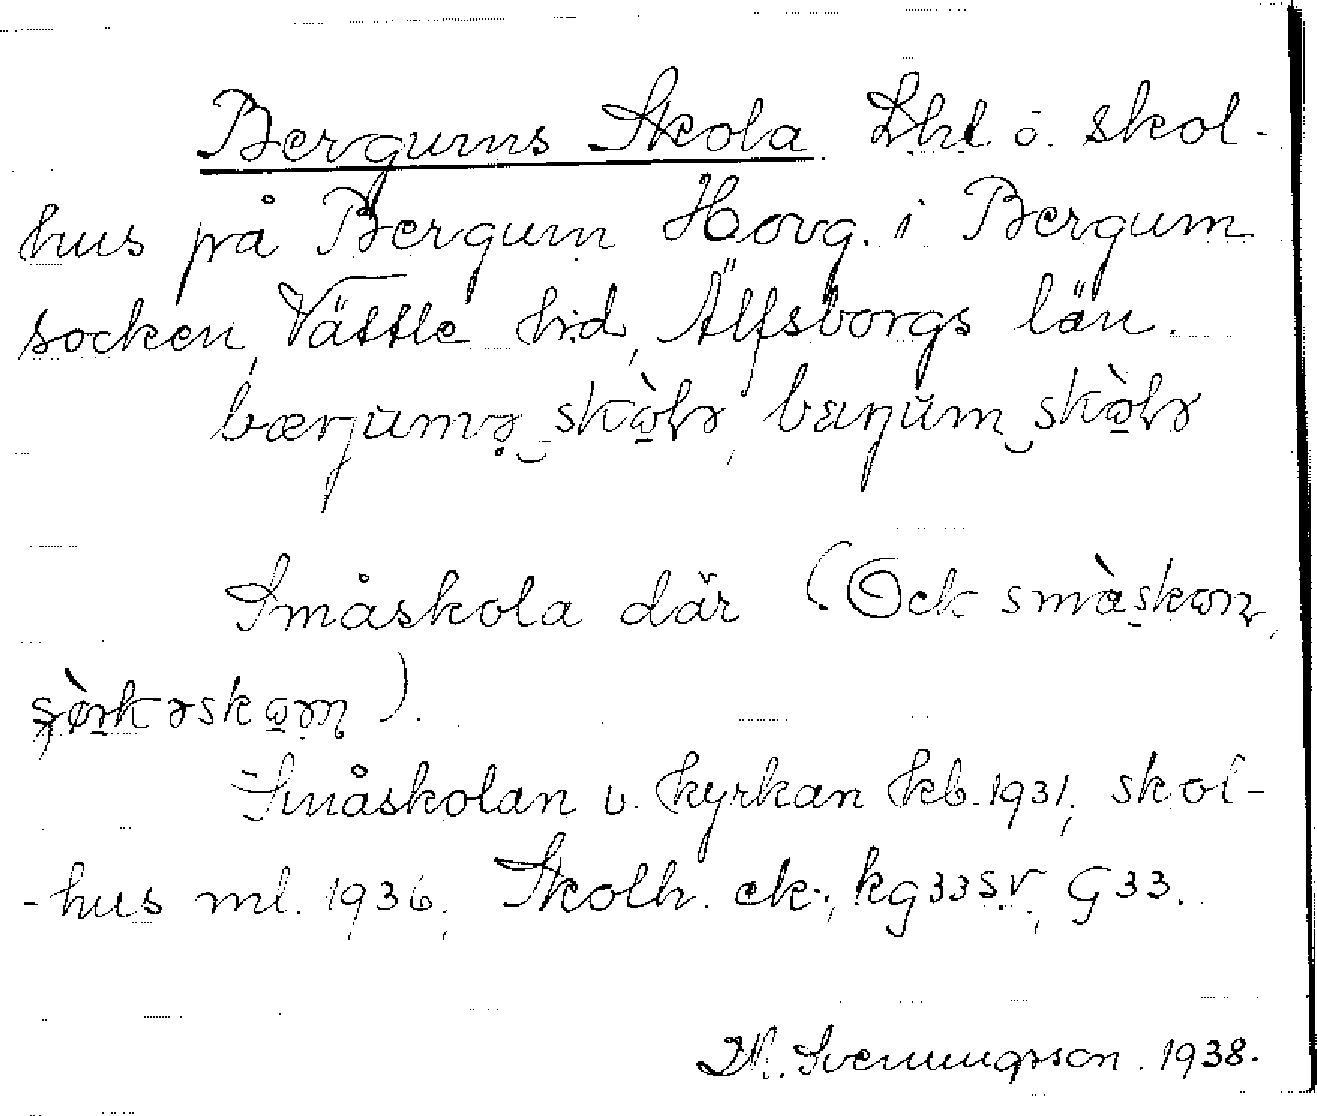 Bergums Skola. Lhl. o. skol-
hus på Bergum Hovg. i Bergum
socken, Vättle hd, Älfsborgs län.
Småskola där (Ock småskon,
).
Småskolan v. kyrkan kb. 1931, skol-
-hus ml. 1936, Skolh. ek., kg33SV, G33.
Th. Svenungsson. 1938.